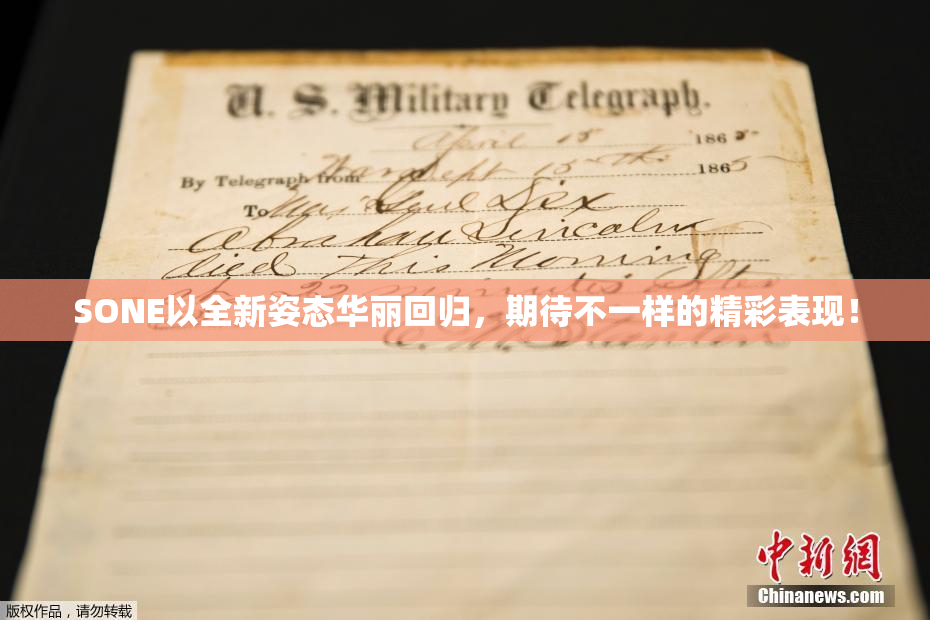 U. S. Military Telegraph.
April 15 1865
By Telegraph from War Dept 15th 1865
To Maj Genl Dix
Abraham Lincoln
died This Morning
22 minutes after
SONE以全新姿态华丽回归，期待不一样的精彩表现！
E. M. Stanton
中新网
Chinanews.com
版权作品，请勿转载